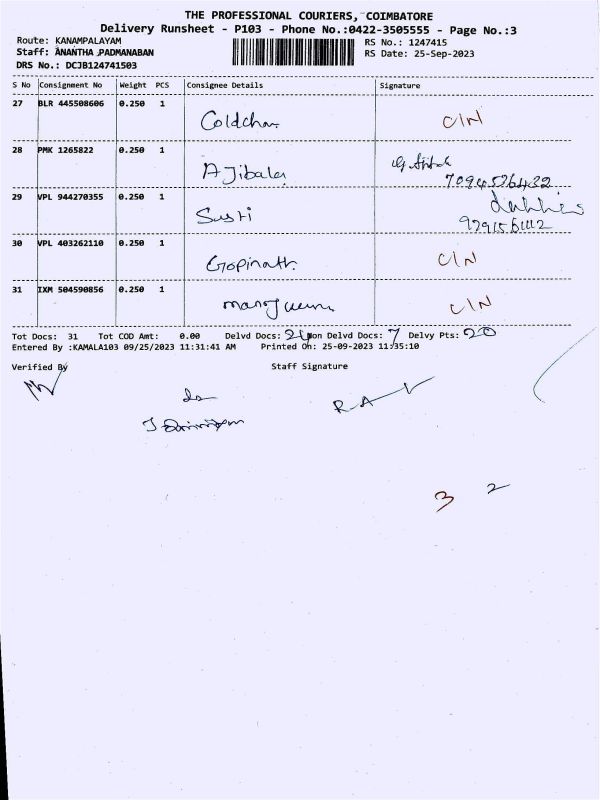 THE PROFESSIONAL COURIERS, COIMBATORE
Delivery Runsheet - P103 - Phone No.:0422-3505555 - Page No.:3
Route: KANAMPALAYAM
RS No.: 1247415
Staff: ANANTHA PADMANABAN
RS Date: 25-Sep-2023
DRS No.: DCJB124741503
S No Consignment No Weight PCS Consignee Details Signature
27 BLR 445508606 0.250 1 C/N
28 PMK 1265822 0.250 1 A Jibala
7094526432
29 VPL 944270355 0.250 1 Susti
30 VPL 403262110 0.250 1 Gopinath. C/N
31 IXM 504590856 0.250 1 C/N
Tot Docs: 31 Tot COD Amt: 0.00 Delvd Docs: 24 Non Delvd Docs: 7 Delvy Pts: 20
Entered By :KAMALA103 09/25/2023 11:31:41 AM Printed On: 25-09-2023 11:35:10
Verified By Staff Signature
3 2